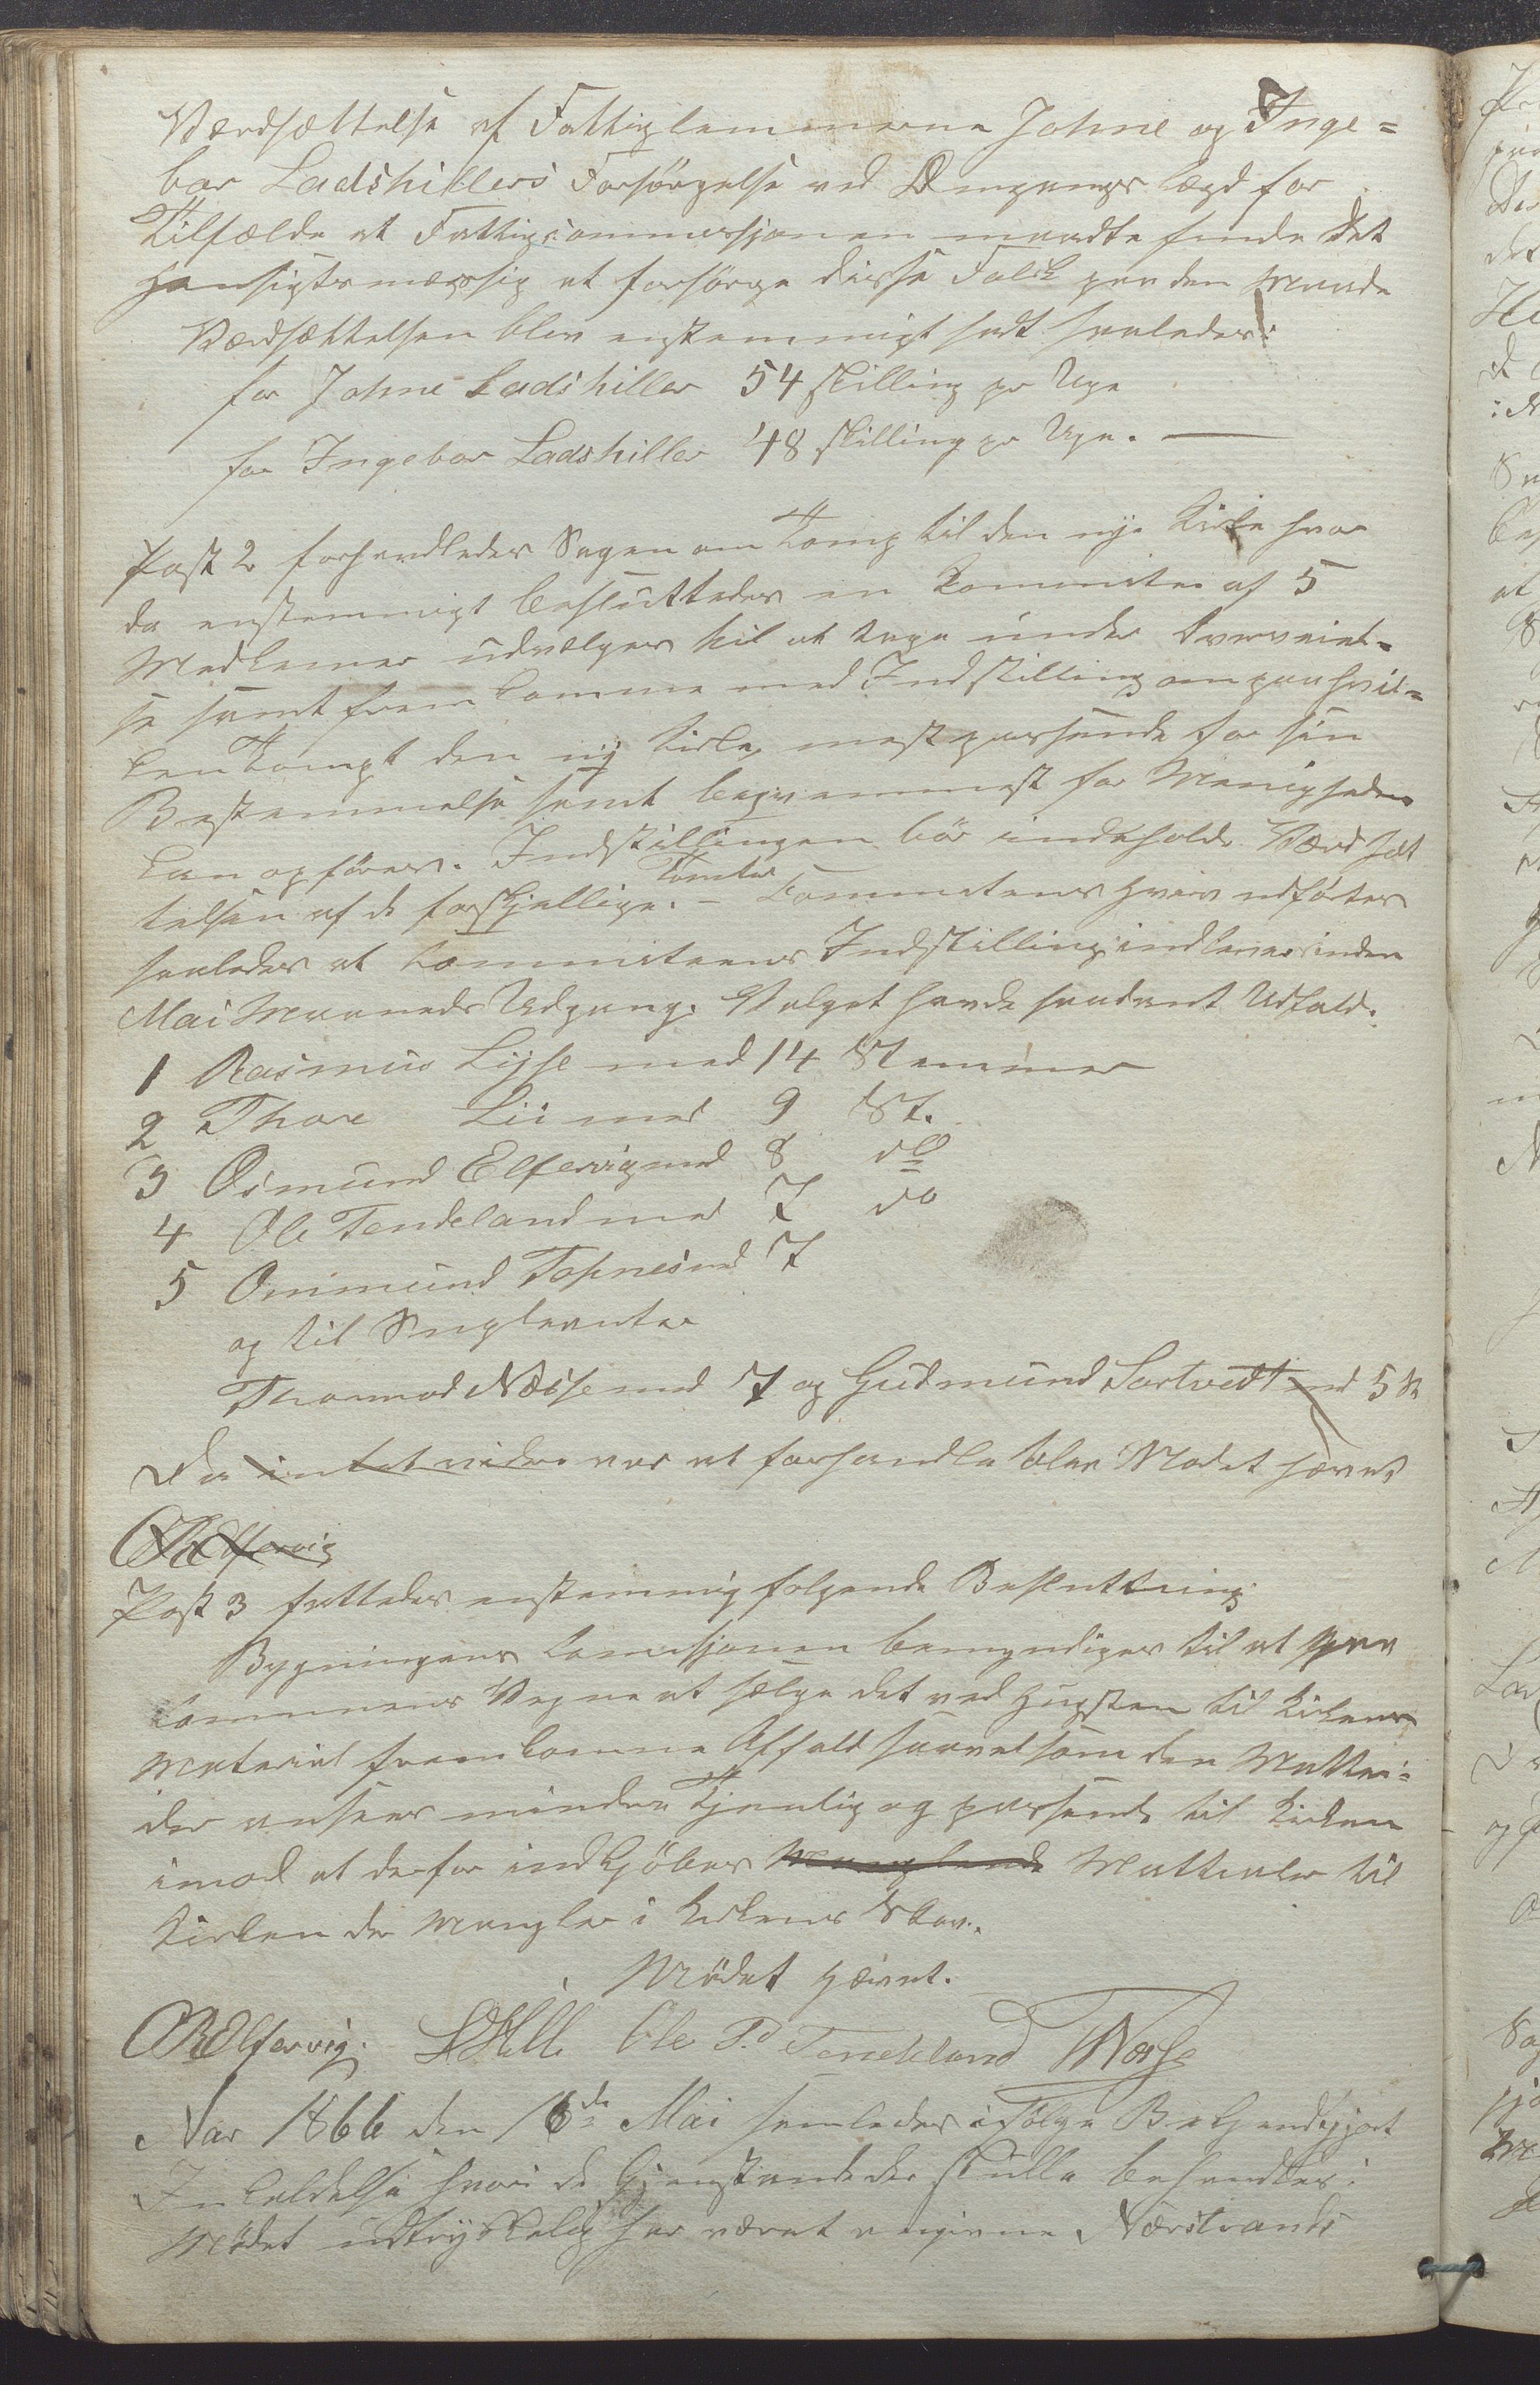 Værdsættelse af Fattiglemmerne Johne og Inge=
bor Ladshillers Forsørgelse ved Omgangs lægd for
Tilfælde at Fattigcommissjonen maadte finde det
Hensigtsmæssig at forsørge disse Folck paa den Maade
Værdsættelsen blev enstemmigt sadt saaledes:
for Johne Ladshiller 54 skilling pr Uge
for Ingebor Ladshiller 48 skilling pr Uge. —
Post 2 forhandledes Sagen om Tomp til den nye Kirke hvor
da enstemmigt besluttedes en Kommite af 5
Medlemer udvælges til at tage under Overveiel=
se samt frem komme med Indstilling om paa hvil=
ken Tompt den ny Kirke, mest passende for sin
Bestemmelse samt beqvemmest for Menigheden
kan opføres. Indstillingen bør indeholde Værdsæt
telsen af de forskjellige Tomter. – Kommiteens Hverv udføres
saaledes at Kommiteens Indstilling indleveres inden
Mai Maaneds Udgang. Valget havde saadant Udfald.
1 Rasmus Lyse med 14 Stemmer
2 Thore Lii med 9 St.
3 Osmund Elfervig med 8 do
4 Ole Tendeland med 7 do
5 Ommund Tofnes med 7
og til Suplanter
Thormod Næsse med 7 og Gudmund Sartvedt med 5 St
Da intet videre var at forhandle blev Mødet hævet
Elfervig
Post 3 fattedes enstemmig følgende Besluttning:
Bygningens Comisjonen bemyndiges til at paa
Communens Vegne at sælge det ved Hugsten til Kirkens
Material fremkomne Affald saavelsom den Matteri=
der ansees mindre Tjenlig og passende til Kirken
imod at derfor indkjøbes Manglende Matterialer til
Kirken der Mangler i Kirkens Skov.
Mødet Hævet.
O R Elfervig. Hille Ole P.d Tendeland T Næsse
Aar 1866 den 16de Mai samledes ifølge Bekjendtgjort
Inkaldelse hvori de Gjenstande der skulle behandles i
Mødet udtrykkelig har været angivne Nærstrands